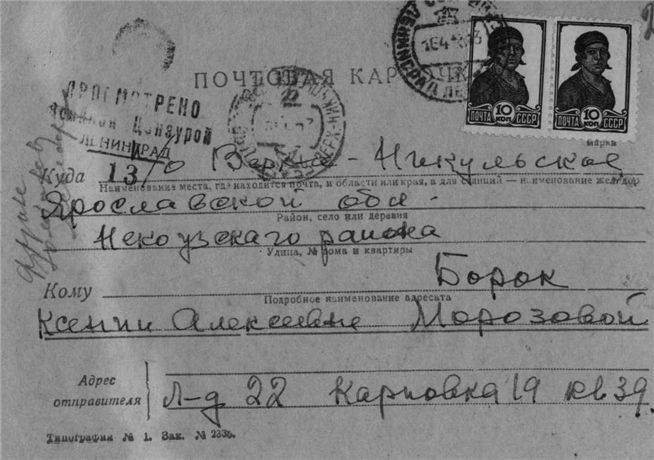 ПОЧТОВАЯ КАРТОЧКА
ПРОСМОТРЕНО
Военной Цензурой
ЛЕНИНГРАД
13
ПОЧТА 10 КОП СССР
ПОЧТА 10 КОП СССР
марка
Куда п/о Верхне-Никульское
Наименование места, где находится почта, и области или края, а для станций — наименование жел. дор
Ярославской обл.
Район, село или деревня
Некоузскаго района
Улица, № дома и квартиры
Борок
Кому
Подробное наименование адресата
Ксении Алексеевне Морозовой
Адрес
отправителя
Л-д 22 Карповка 19 кв 39.
Типография № 1. Зак. № 2335.